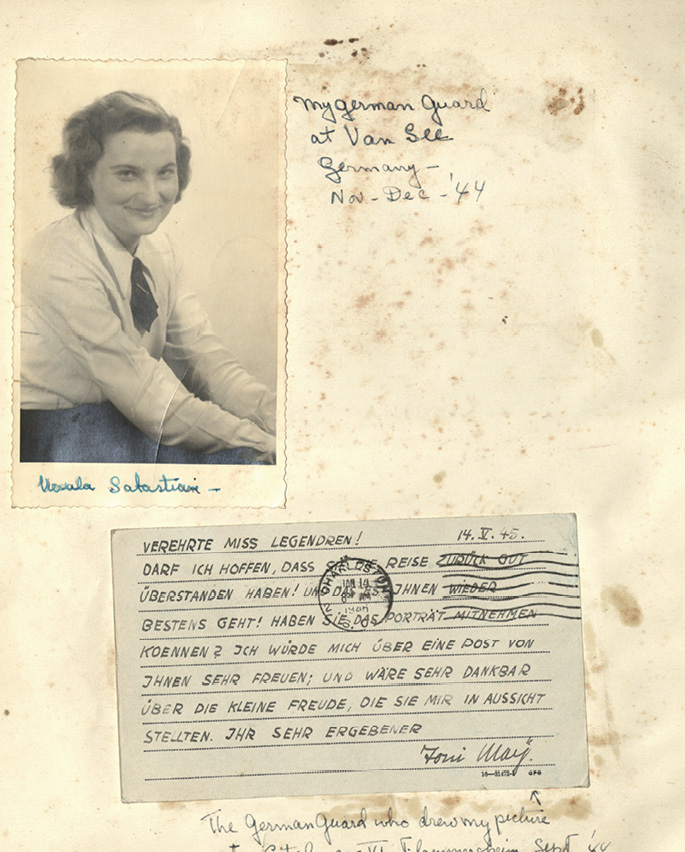 My german Guard
at Van See
Germany -
Nov - Dec - '44
Ursula Sabastian -
VEREHRTE MISS LEGENDREN!
14. V. 45.
DARF ICH HOFFEN, DASS REISE ZURÜCK GUT
ÜBERSTANDEN HABEN! UND DASS ES IHNEN WIEDER
BESTENS GEHT! HABEN SIE DAS PORTRÄT MITNEHMEN
KOENNEN? ICH WÜRDE MICH ÜBER EINE POST VON
IHNEN SEHR FREUEN; UND WÄRE SEHR DANKBAR
ÜBER DIE KLEINE FREUDE, DIE SIE MIR IN AUSSICHT
STELLTEN. IHR SEHR ERGEBENER
CHARLESTON
JAN 14
1946
S.C.
Toni May
GPO
The German Guard who drew my picture
Sept '44